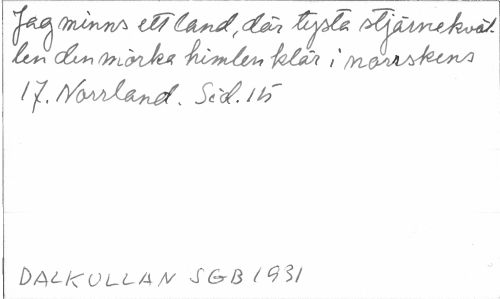 Jag minns ett land, där tysta stjärnekväl-
len den mörka himlen klär i norrskens
17. Norrland. Sid. 115
DALKULLAN SGB 1931